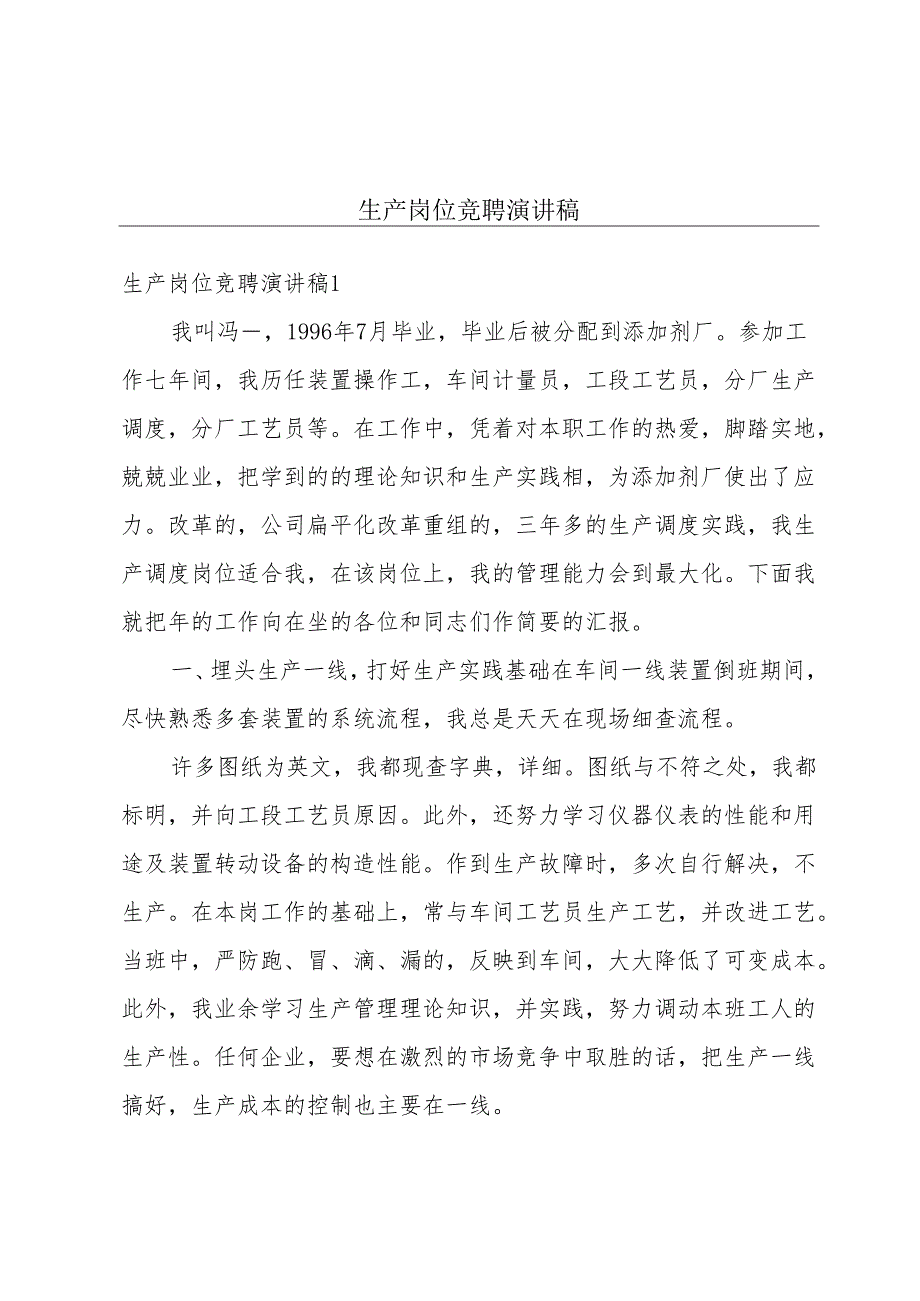 生产岗位竞聘演讲稿
生产岗位竞聘演讲稿1
我叫冯一，1996年7月毕业，毕业后被分配到添加剂厂。参加工
作七年间，我历任装置操作工，车间计量员，工段工艺员，分厂生产
调度，分厂工艺员等。在工作中，凭着对本职工作的热爱，脚踏实地，
兢兢业业，把学到的的理论知识和生产实践相，为添加剂厂使出了应
力。改革的，公司扁平化改革重组的，三年多的生产调度实践，我生
产调度岗位适合我，在该岗位上，我的管理能力会到最大化。下面我
就把年的工作向在坐的各位和同志们作简要的汇报。
一、埋头生产一线，打好生产实践基础在车间一线装置倒班期间，
尽快熟悉多套装置的系统流程，我总是天天在现场细查流程。
许多图纸为英文，我都现查字典，详细。图纸与不符之处，我都
标明，并向工段工艺员原因。此外，还努力学习仪器仪表的性能和用
途及装置转动设备的构造性能。作到生产故障时，多次自行解决，不
生产。在本岗工作的基础上，常与车间工艺员生产工艺，并改进工艺。
当班中，严防跑、冒、滴、漏的，反映到车间，大大降低了可变成本。
此外，我业余学习生产管理理论知识，并实践，努力调动本班工人的
生产性。任何企业，要想在激烈的市场竞争中取胜的话，把生产一线
搞好，生产成本的控制也主要在一线。